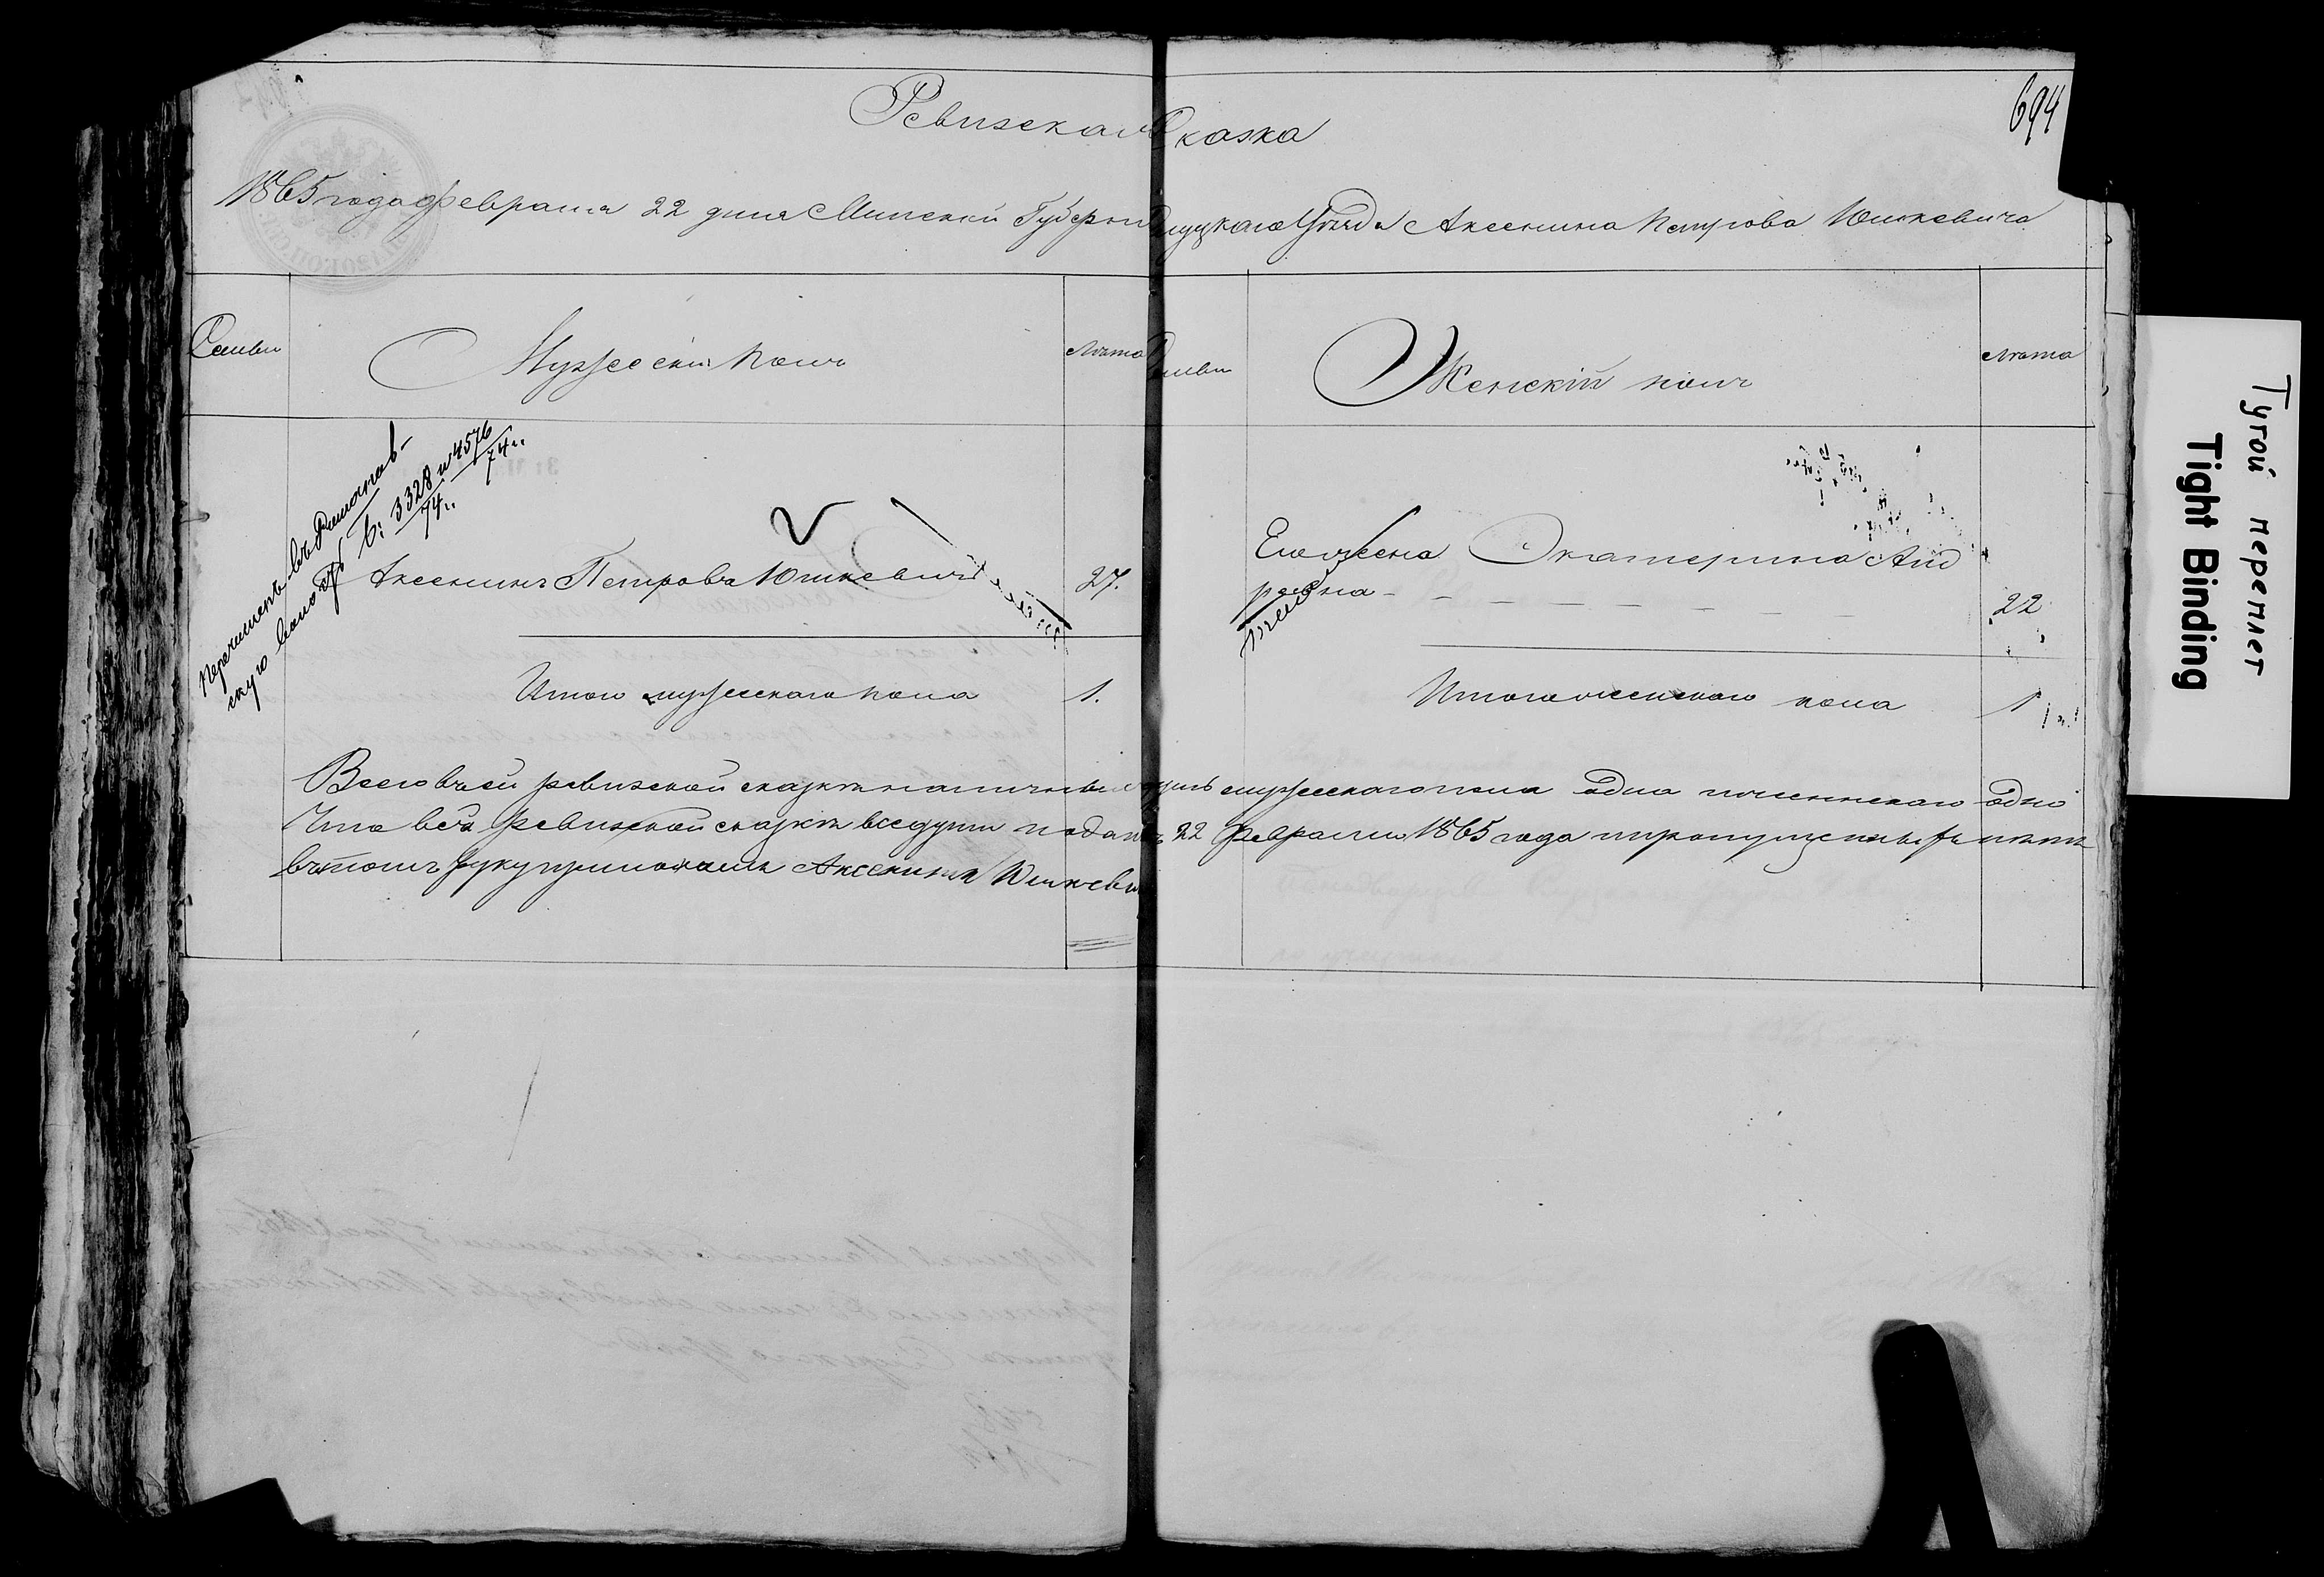 694
Ревизская Сказка
1865 года февраля 22 дня Минской Губернии Слуцкаго Уезда Аксентия Петрова Юшкевича
Семьи
Мужеский полъ
Лета
Семьи
Женскій полъ
Лета
Перечисленъ въ Романов-
скую волость
в: 3328 и 4576
74.. 74..
Аксентий Петровъ Юшкевичъ
27.
Его жена Екатерина Анд
реева
22
Итого мужескаго пола
1.
Итого женскаго пола
1
Всего въ сей ревизской сказке наличныхъ душъ мужескаго пола одна женскаго одно
Что в сей Ревизской сказке все души поданы 22 Февраля 1865 года и пропущенныхъ нетъ
въ томъ руку приложилъ Аксентий Юшкевичъ
Тугой переплет
Tight Binding